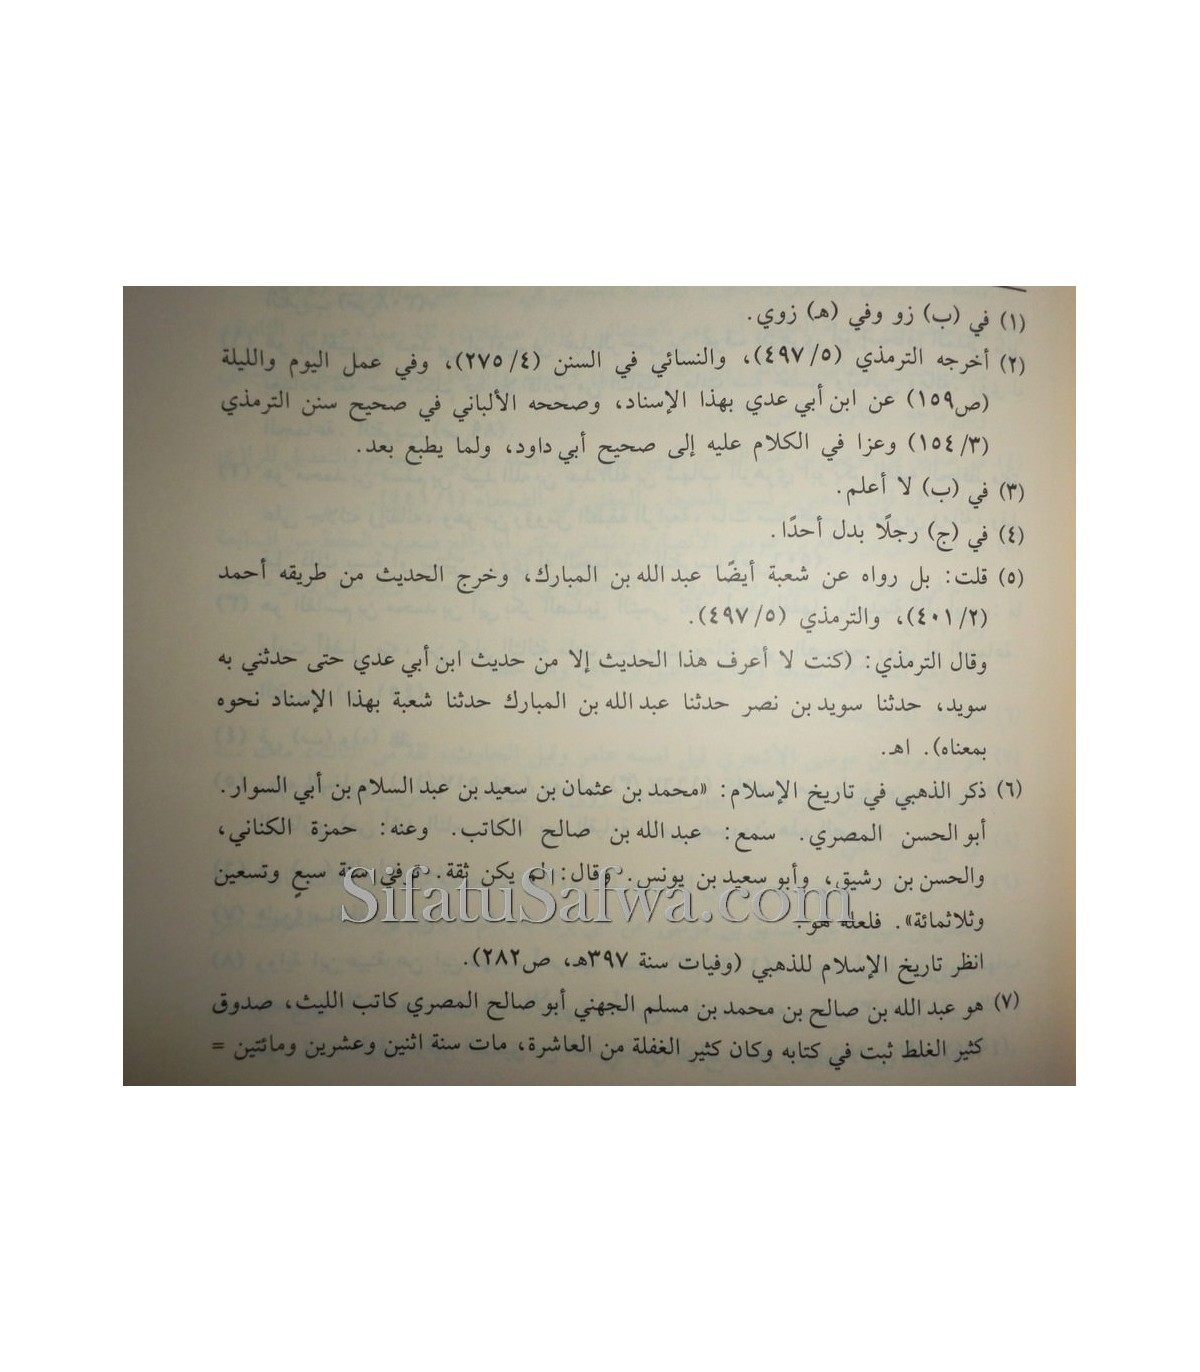 (١) في (ب) زو وفي (هـ) زوي.
(٢) أخرجه الترمذي (٤٩٧/٥)، والنسائي في السنن (٢٧٥/٤)، وفي عمل اليوم والليلة
(ص١٥٩) عن ابن أبي عدي بهذا الإسناد، وصححه الألباني في صحيح سنن الترمذي
(١٥٤/٣) وعزا في الكلام عليه إلى صحيح أبي داود، ولما يطبع بعد.
(٣) في (ب) لا أعلم.
(٤) في (ج) رجلًا بدل أحدًا.
(٥) قلت: بل رواه عن شعبة أيضًا عبد الله بن المبارك، وخرج الحديث من طريقه أحمد
(٤٠١/٢)، والترمذي (٤٩٧/٥).
وقال الترمذي: (كنت لا أعرف هذا الحديث إلا من حديث ابن أبي عدي حتى حدثني به
سويد، حدثنا سويد بن نصر حدثنا عبد الله بن المبارك حدثنا شعبة بهذا الإسناد نحوه
بمعناه). اهـ.
(٦) ذكر الذهبي في تاريخ الإسلام: «محمد بن عثمان بن سعيد بن عبد السلام بن أبي السوار.
أبو الحسن المصري. سمع: عبد الله بن صالح الكاتب. وعنه: حمزة الكناني،
والحسن بن رشيق، وأبو سعيد بن يونس. وقال: لم يكن ثقة. توفي سنة سبعٍ وتسعين
وثلاثمائة». فلعله هو.
SifatuSafwa.com
انظر تاريخ الإسلام للذهبي (وفيات سنة ٣٩٧هـ، ص٢٨٢).
(٧) هو عبد الله بن صالح بن محمد بن مسلم الجهني أبو صالح المصري كاتب الليث، صدوق
كثير الغلط ثبت في كتابه وكان كثير الغفلة من العاشرة، مات سنة اثنين وعشرين ومائتين =